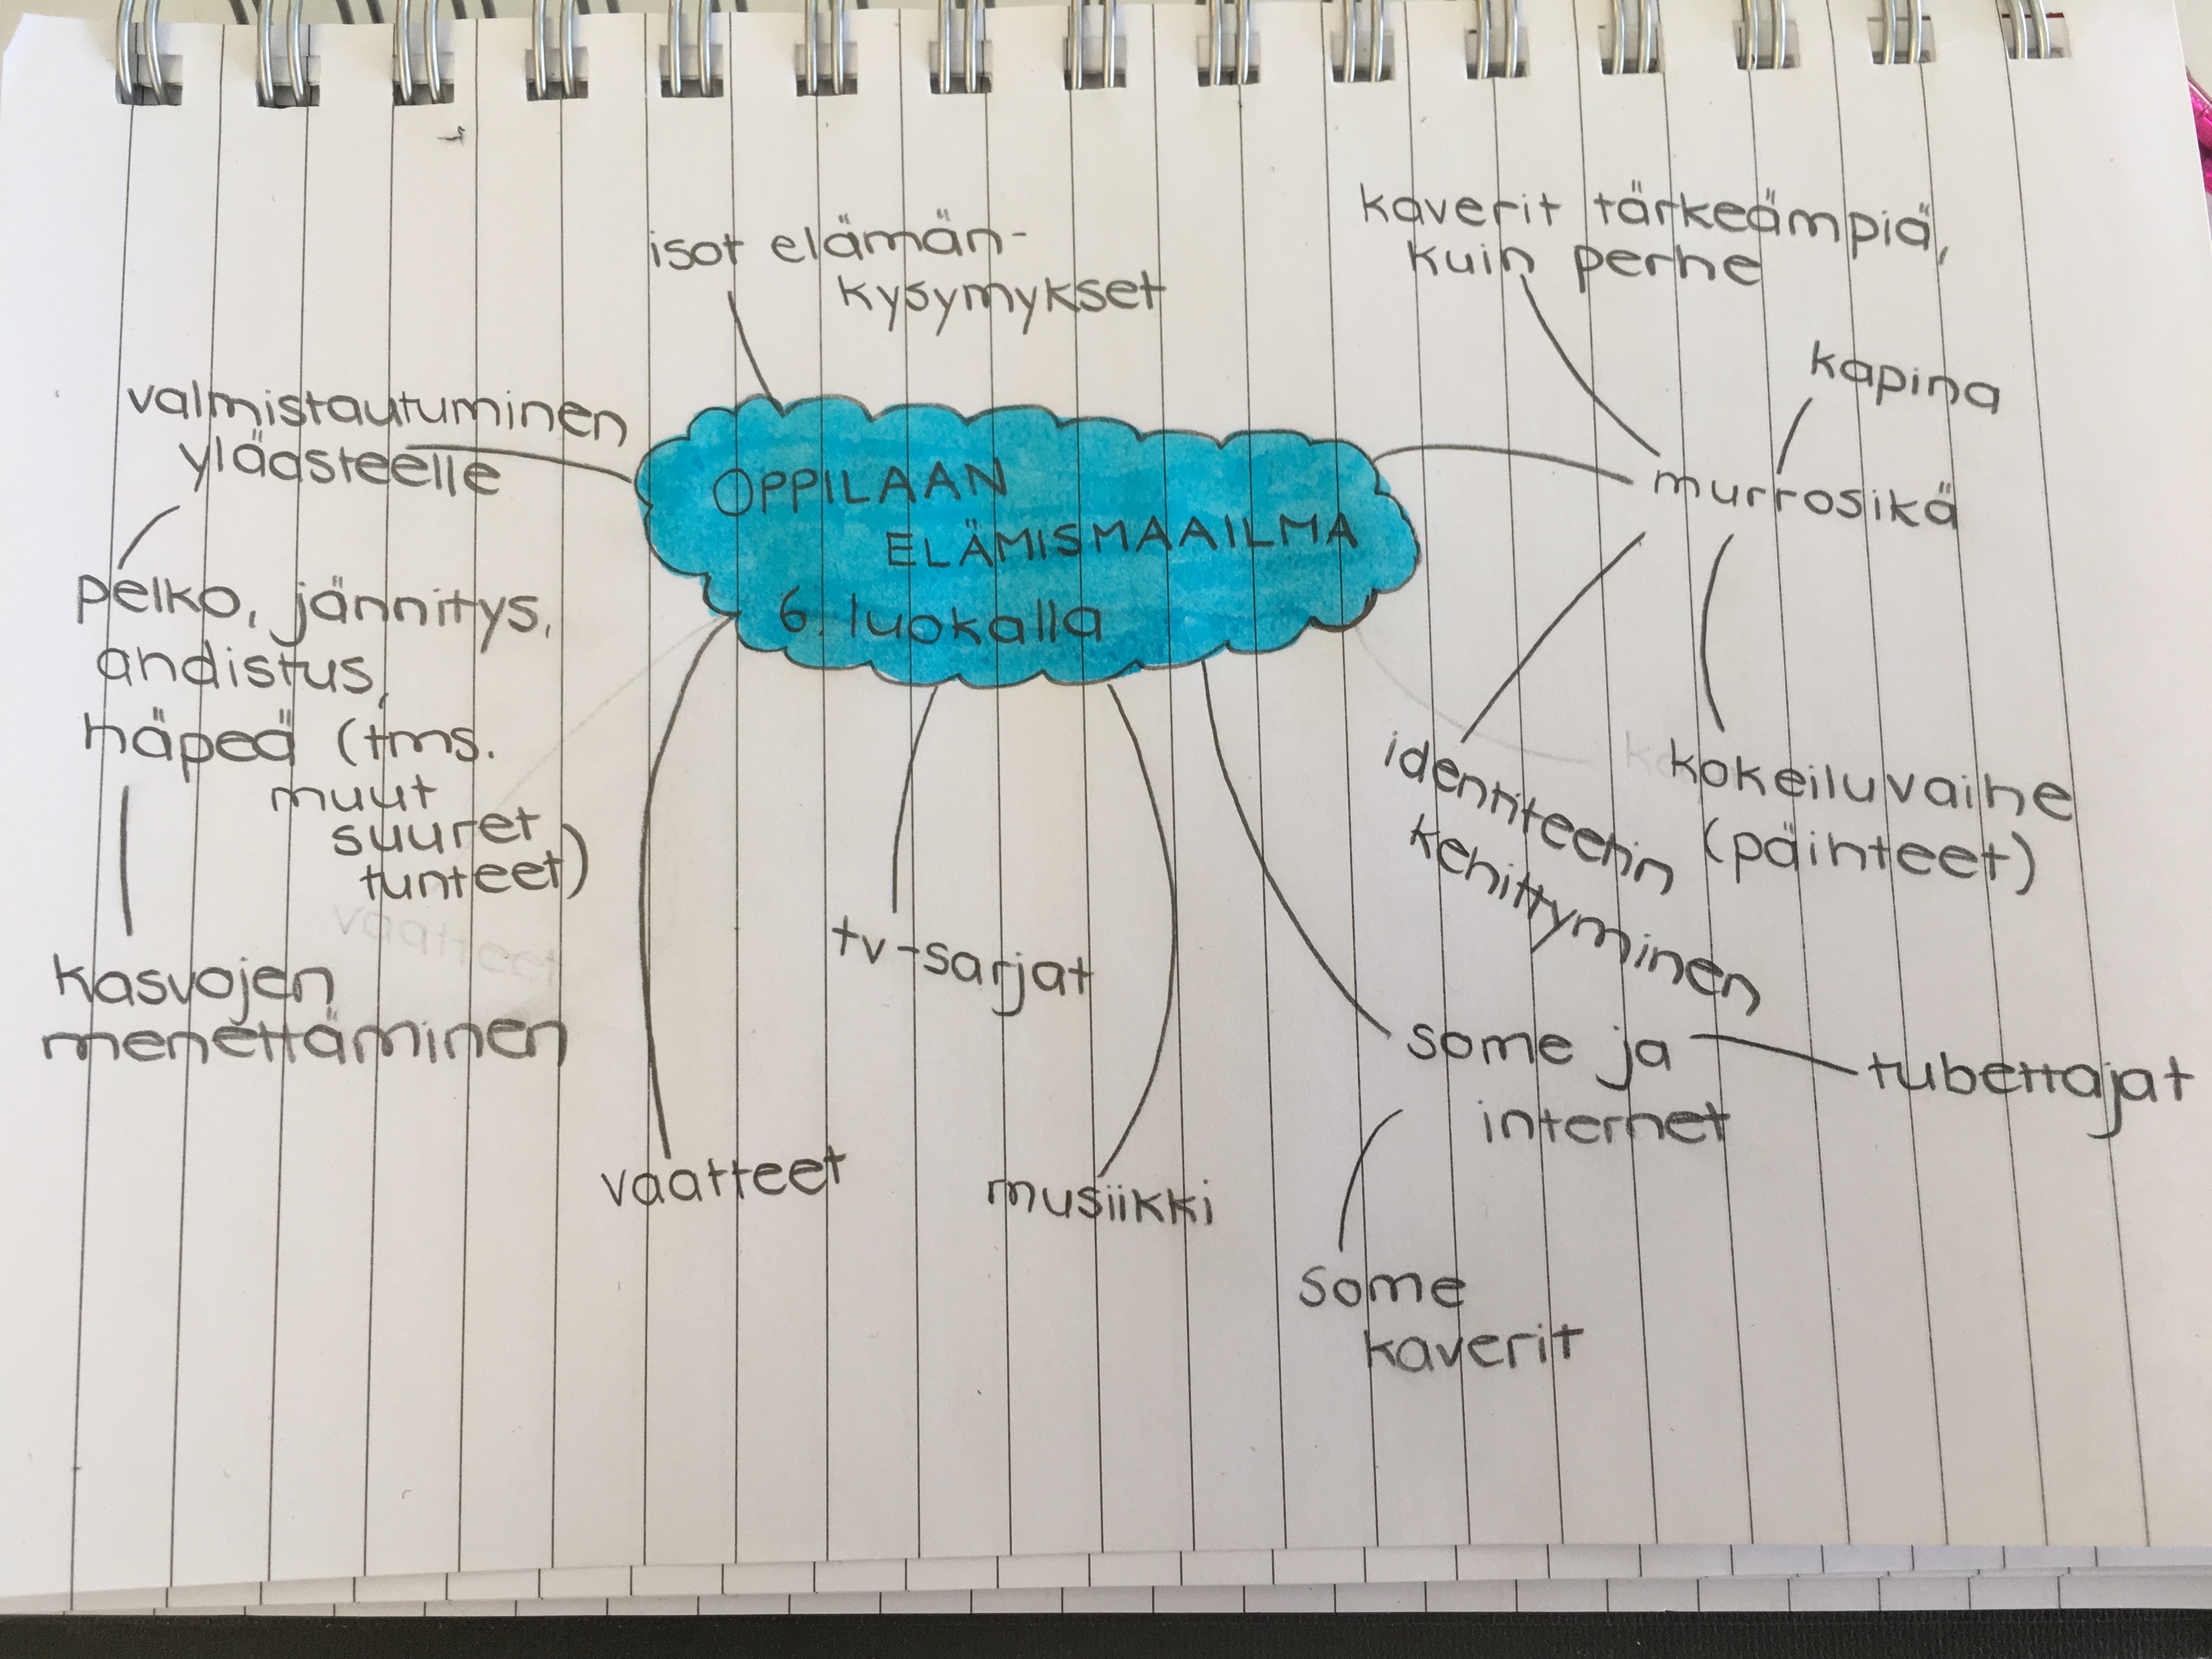 isot elämän-
kysymykset
kaverit tärkeämpiä,
kuin perhe
kapina
murrosikä
valmistautuminen
yläasteelle
OPPILAAN
ELÄMISMAAILMA
6. luokalla
pelko, jännitys,
ahdistus,
häpeä (tms.
muut
suuret
tunteet)
kasvojen
menettäminen
vaatteet
vaatteet
tv-sarjat
musiikki
identiteetin
kehittyminen
kokeiluvaihe
(päihteet)
some ja
internet
tubettajat
some
kaverit